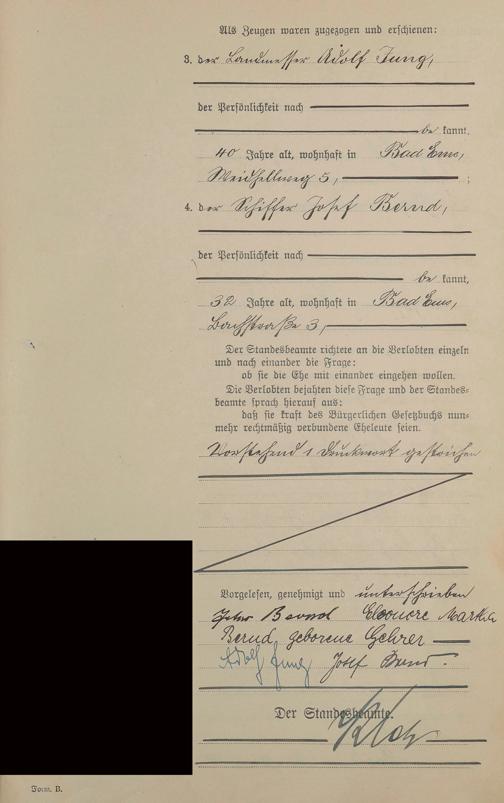 Als Zeugen waren zugezogen und erschienen:
3. der Landmesser Adolf Jung,
der Persönlichkeit nach
be kannt,
40 Jahre alt, wohnhaft in Bad Ems,
Weidhellweg 5, ;
4. der Schiffer Josef Bernd,
der Persönlichkeit nach
be kannt,
32 Jahre alt, wohnhaft in Bad Ems,
Bachstraße 3,
Der Standesbeamte richtete an die Verlobten einzeln
und nach einander die Frage:
ob sie die Ehe mit einander eingehen wollen.
Die Verlobten bejahten diese Frage und der Standes-
beamte sprach hierauf aus:
daß sie kraft des Bürgerlichen Gesetzbuchs nun-
mehr rechtmäßig verbundene Eheleute seien.
Vorstehend 1 Druckwort gestrichen
Vorgelesen, genehmigt und unterschrieben
Bernd Eleonore
Bernd geborene Gehrer
Adolf Jung Josef Bernd.
Der Standesbeamte.
Form. B.